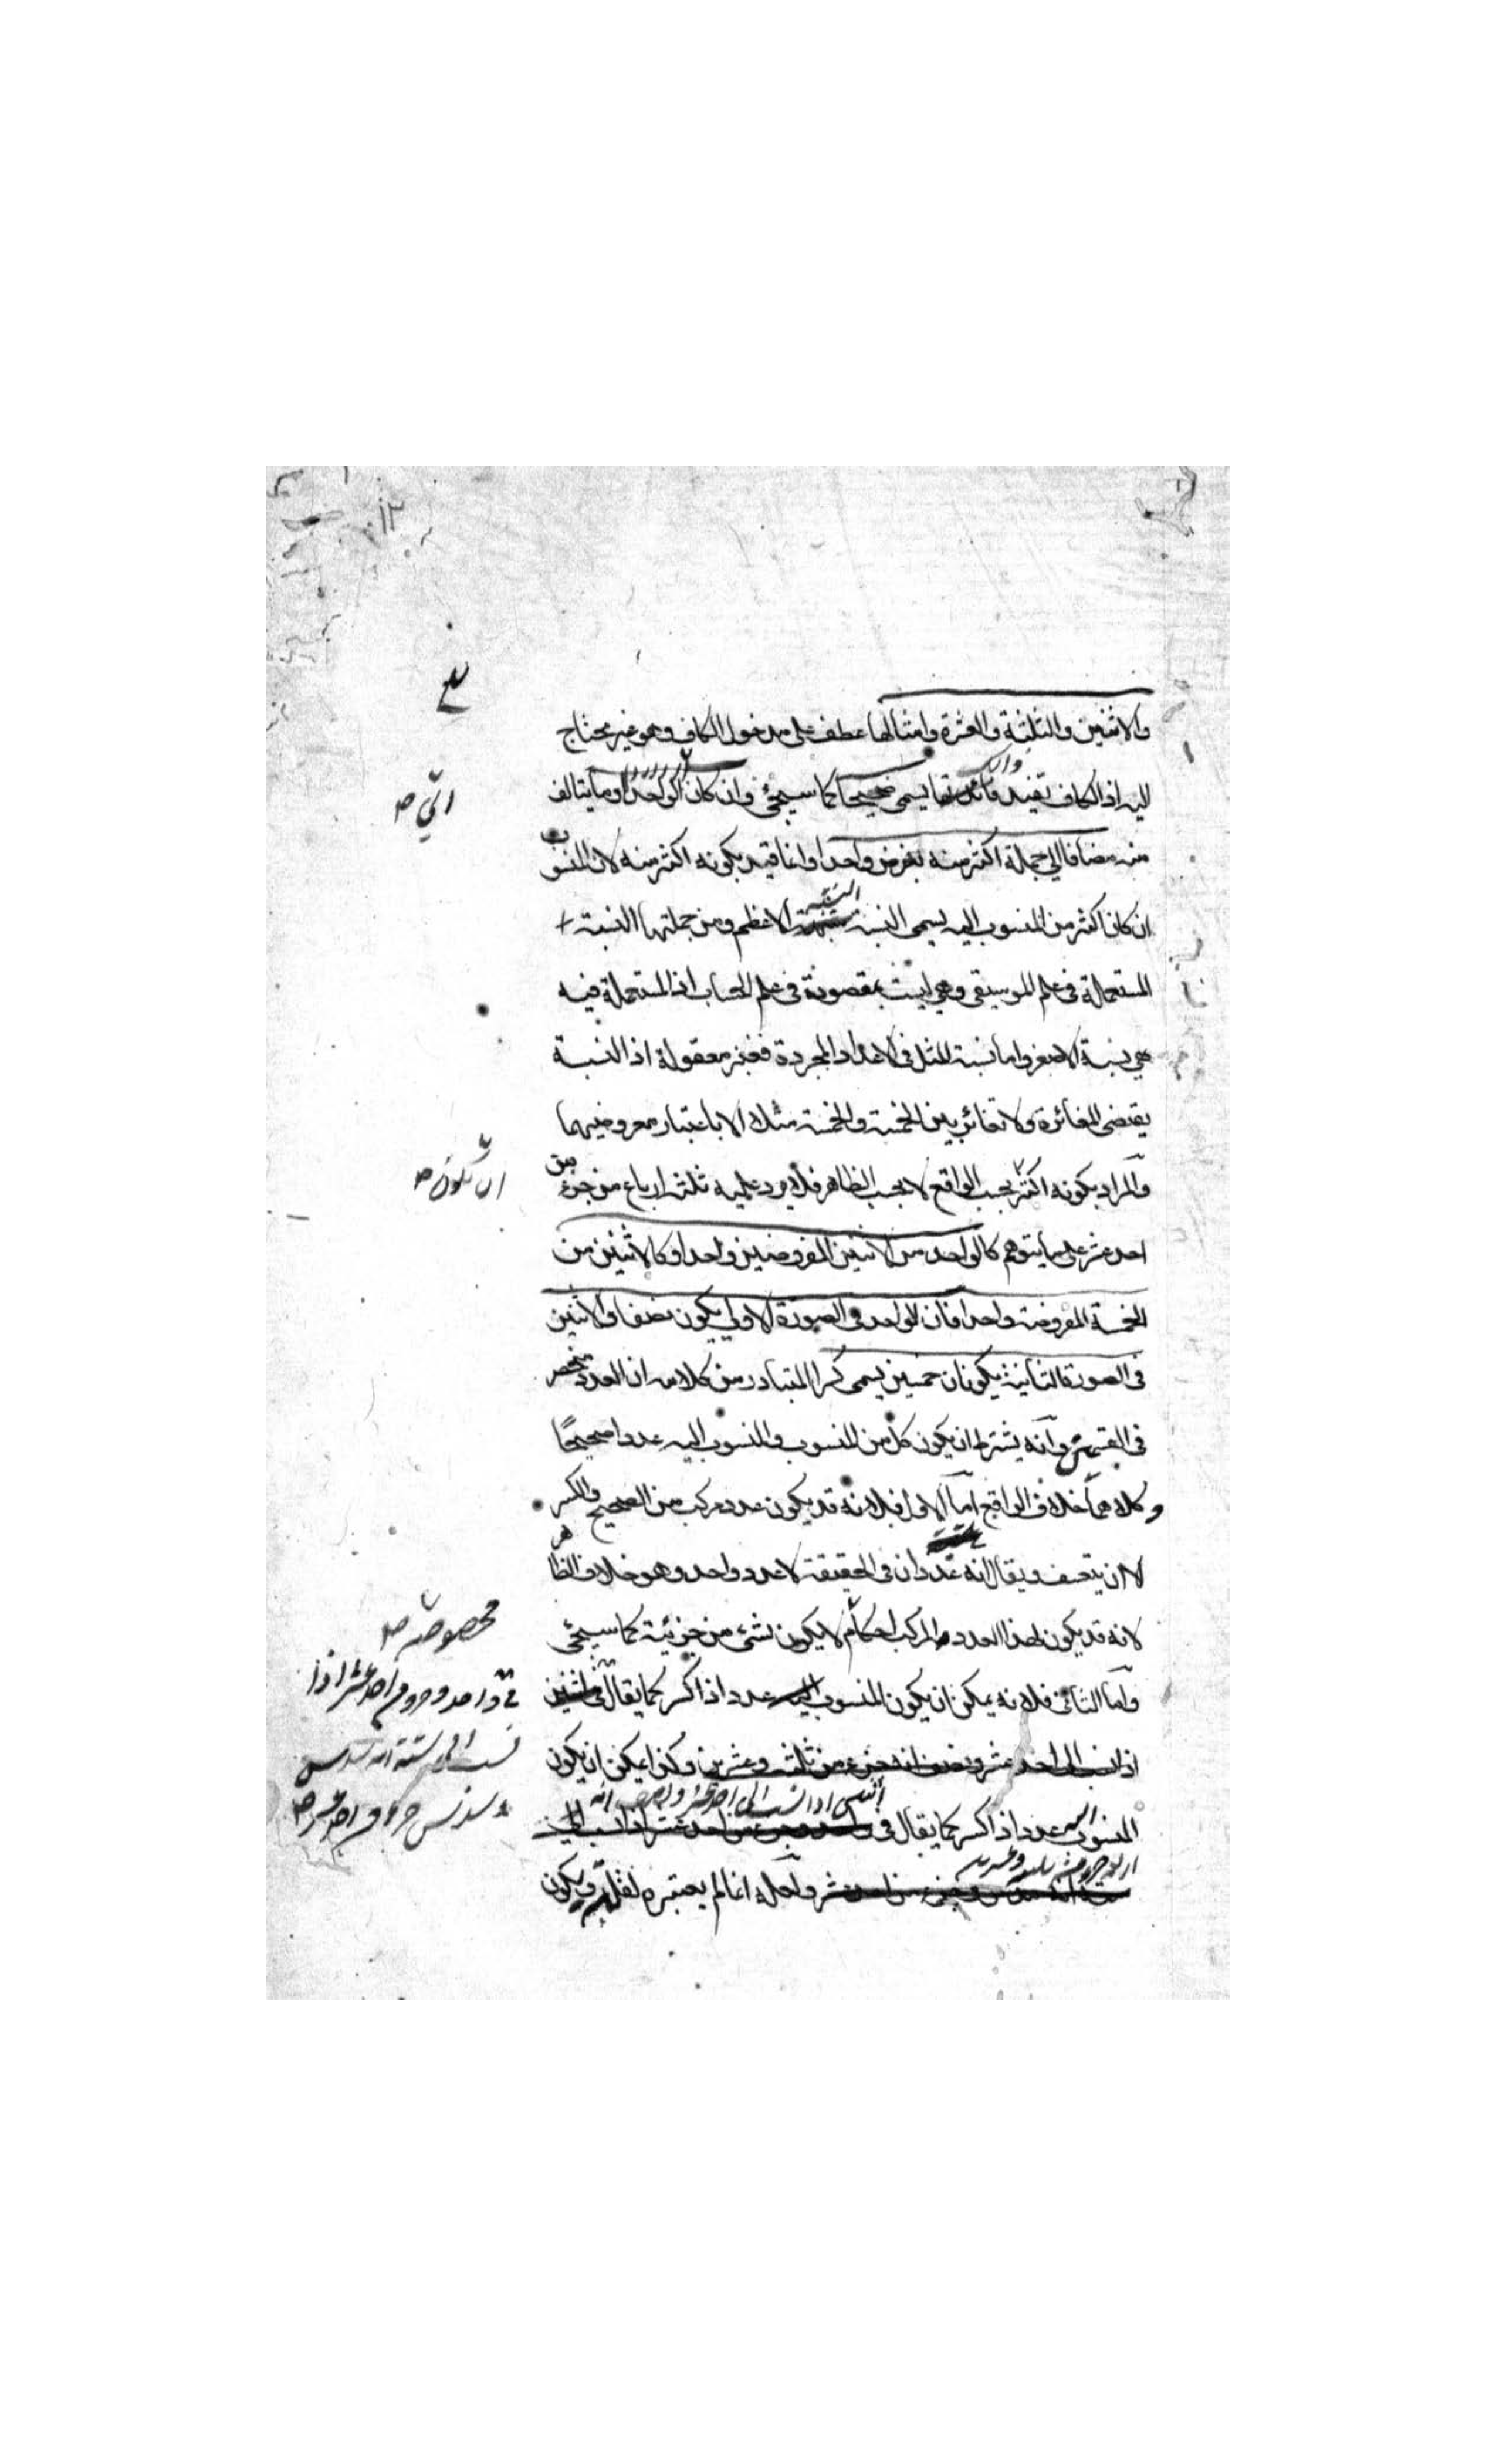 والاثنين والثلثة والعشرة وامثالها عطف على مدخول الكاف وهو غير محتاج
اليه اذ الكاف تفيد يسمى صحيحا كما سيجئ وان كان الواحد او ما يتالف
منه مضافا الى جملة اكثر منه بفرض واحدا وانما قيد بكونه اكثر منه لان المنسوب
ان كان اكثر من المنسوب اليه يسمى النسبة النسبة الاعظم ومن جملتها النسبة
المستعملة فى علم الموسيقى وهى ليست بمقصودة فى علم الحساب اذ المستعملة فيه
هى نسبة الاصغر واما نسبة المثل فى الاعداد المجردة فغير معقولة اذ النسبة
يقتضى المغائرة ولا تغائر بين الخمسة والخمسة مثلا الا باعتبار معروضيهما
والمراد بكونه اكثر بحسب الواقع لا بحسب الظاهر فلا يرد عليه ثلثة ارباع من جزء من
احد عشر على ما يتوهم كالواحد من الاثنين المفروضين واحدا وكالاثنين من
الخمسة المفروضة واحدا فان الواحد فى الصورة الاولى يكون نصفا والاثنين
فى الصورة الثانية يكونان خمسين يسمى كسرا المتبادر من كلامه ان العدد منحصر
فى القسمين وانه يشترط ان يكون كل من المنسوب والمنسوب اليه عددا صحيحا
وكلاهما خلاف الواقع اما الاول فلانه قد يكون عدد مركب من الصحيح والكسر
لا ان يتعسف ويقال انه عددان فى الحقيقة لا عدد واحد وهو خلاف الظاهر
لانه قد يكون لهذا العدد المركب احكام لا يكون لشئ من جزئية كما سيجئ
واما الثانى فلانه يمكن ان يكون المنسوب عددا ذا كسر كما يقال فى
اذا نسب الى احد عشر ونصف انه جزء من ثلثة وعشرين وكذا يمكن ان يكون
المنسوب اليه عددا ذا كسر كما يقال فى اثنين اذا نسب الى احد عشر ونصف انه
اربعة اجزاء من ثلثة وعشرين ولعله انما لم يعتبره لقلته ويكون
ان يكون صح
مخصوصة صح
فى واحد وجزء من احد عشر اذا
نسب الى ستة انه سدس
وسدس جزء من احد عشر صح